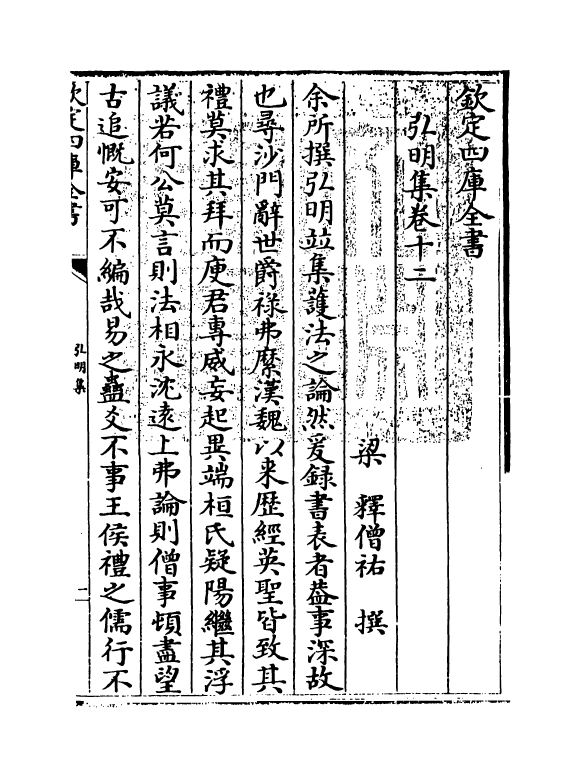 欽定四庫全書
弘明集卷十二
梁 釋僧祐 撰
余所撰弘明並集護法之論然爰録書表者葢事深故
也尋沙門辭世爵祿弗縻漢魏以来歴經英聖皆致其
禮莫求其拜而庾君專威妄起異端桓氏疑陽繼其浮
議若何公莫言則法相永沈遠上弗論則僧事頓盡望
古追慨安可不編哉易之蠱爻不事王侯禮之儒行不
欽定四庫全書
弘明集